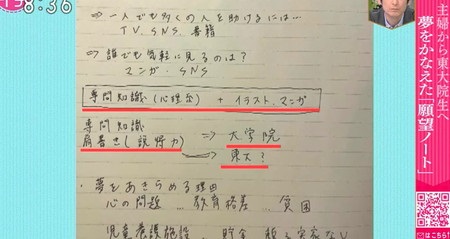 8:36
主婦から東大院生へ
夢をかなえた「願望ノート」
はこちら!
⇨ 一人でも多くの人を助けるには…
TV. SNS 書籍
⇨ 誰でも気軽に見るのは?
マンガ・SNS
専門知識(心理系) + イラスト、マンガ
専門知識
肩書き(説得力) ⇒ 大学院
東大?
・夢をあきらめる理由
心の問題 … 教育格差 … 貧困
児童養護施設 貯金 頼る実家なし